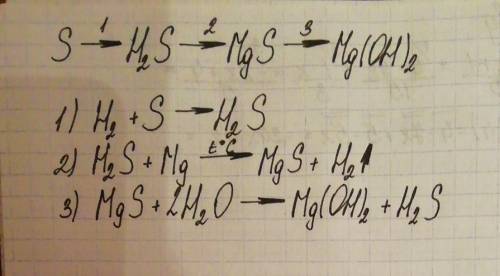 S →¹ H₂S →² MgS →³ Mg(OH)₂
1) H₂ + S → H₂S
2) H₂S + Mg →t°C MgS + H₂↑
3) MgS + 2H₂O → Mg(OH)₂ + H₂S